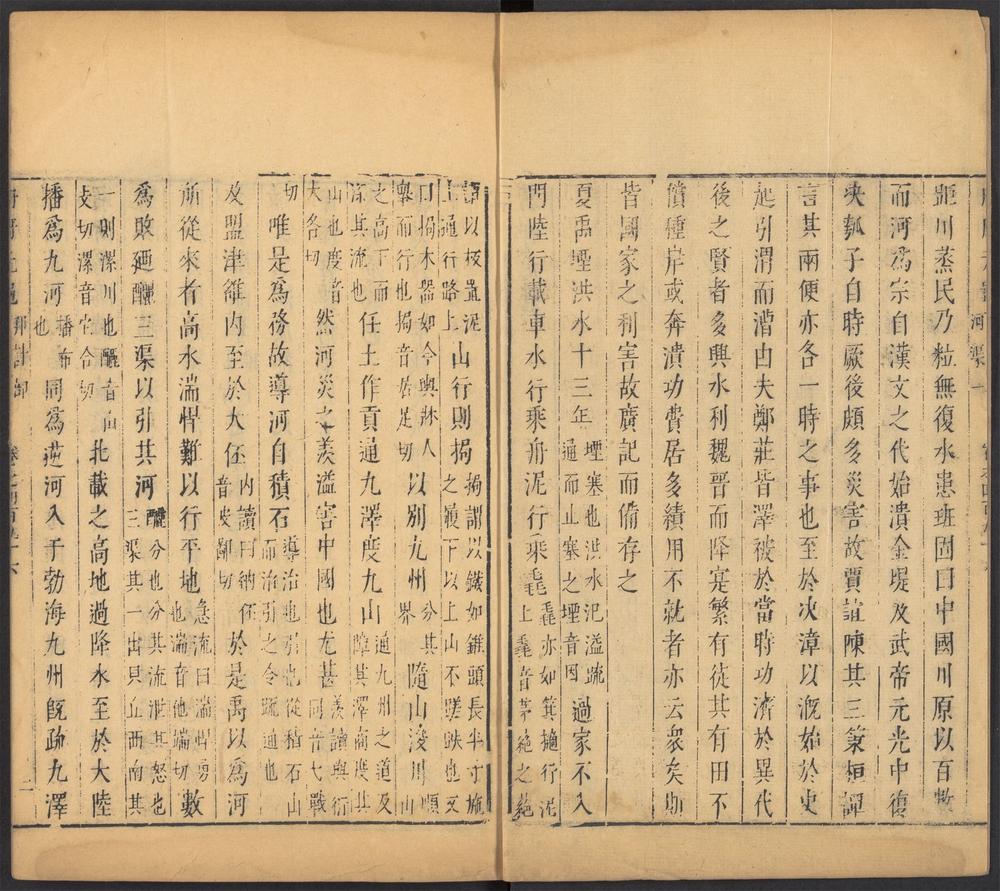 河渠一
距川蒸民乃粒無復水患班固曰中國川原以百數
而河爲宗自漢文之代始潰金堤及武帝元光中復
決瓠子自時厥後頗多災害故賈誼陳其三策桓譚
言其兩便亦各一時之事也至於決漳以溉始於史
起引渭而漕由夫鄭莊皆澤被於當時功濟於異代
後之賢者多興水利魏晉而降寔繁有徒其有田不
償種岸或奔潰功費居多績用不就者亦云衆矣斯
皆國家之利害故廣記而備存之
夏禹堙洪水十三年堙塞也洪水氾溢䟽通而止塞之堙音因過家不入
門陸行載車水行乘舟泥行乘毳毳亦如箕擿行泥上毳音茅蕝之蕝
謂以板置泥上通行路上山行則挶挶謂以鐵如錐頭長半寸施之履下以上山不蹉跌也又
曰挶木器如今輿牀人轝而行也挶音居足切以別九州分其界隨山浚川順山
之高下而深其流也任土作貢通九澤度九山通九州之道及障其澤商度其
山也度音大各切然河災之羨溢害中國也尤甚羨讀與衍同音弋戰
切唯是爲務故導河自積石導治也引也從積石山而治引之令䟽通也
及盟津雒內至於大伾內讀曰納伾音皮鄙切於是禹以爲河
所從來者高水湍悍難以行平地急流曰湍悍勇也湍音他端切數
爲敗廼釃三渠以引其河釃分也分其流泄其怒也三渠其一出貝丘西南其
一則漯川也釃音山支切漯音它合切北載之高地過降水至於大陸
播爲九河播布也同爲逆河入于勃海九州旣䟽九澤
冊府元龜 邦計部 卷之四百九十六 二